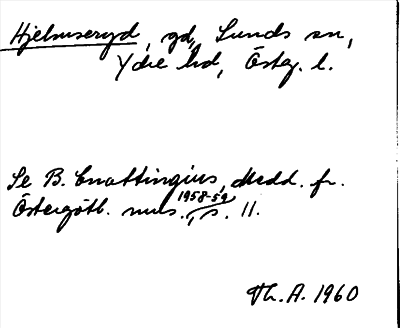 Hjelmseryd, gd, Sunds sn,
Ydre hd, Österg. l.
Se B. Cnattingius, Medd. fr.
Östergötl. mus. 1958-59, s. 11.
Th. A. 1960